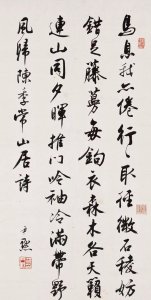 馬息我亦倦行行取徑微石稜妨
錯足藤蔓每鉤衣森木各天願
連山同夕暉推門吟袖冷滿帶野
風歸陳季常山居詩
尹默